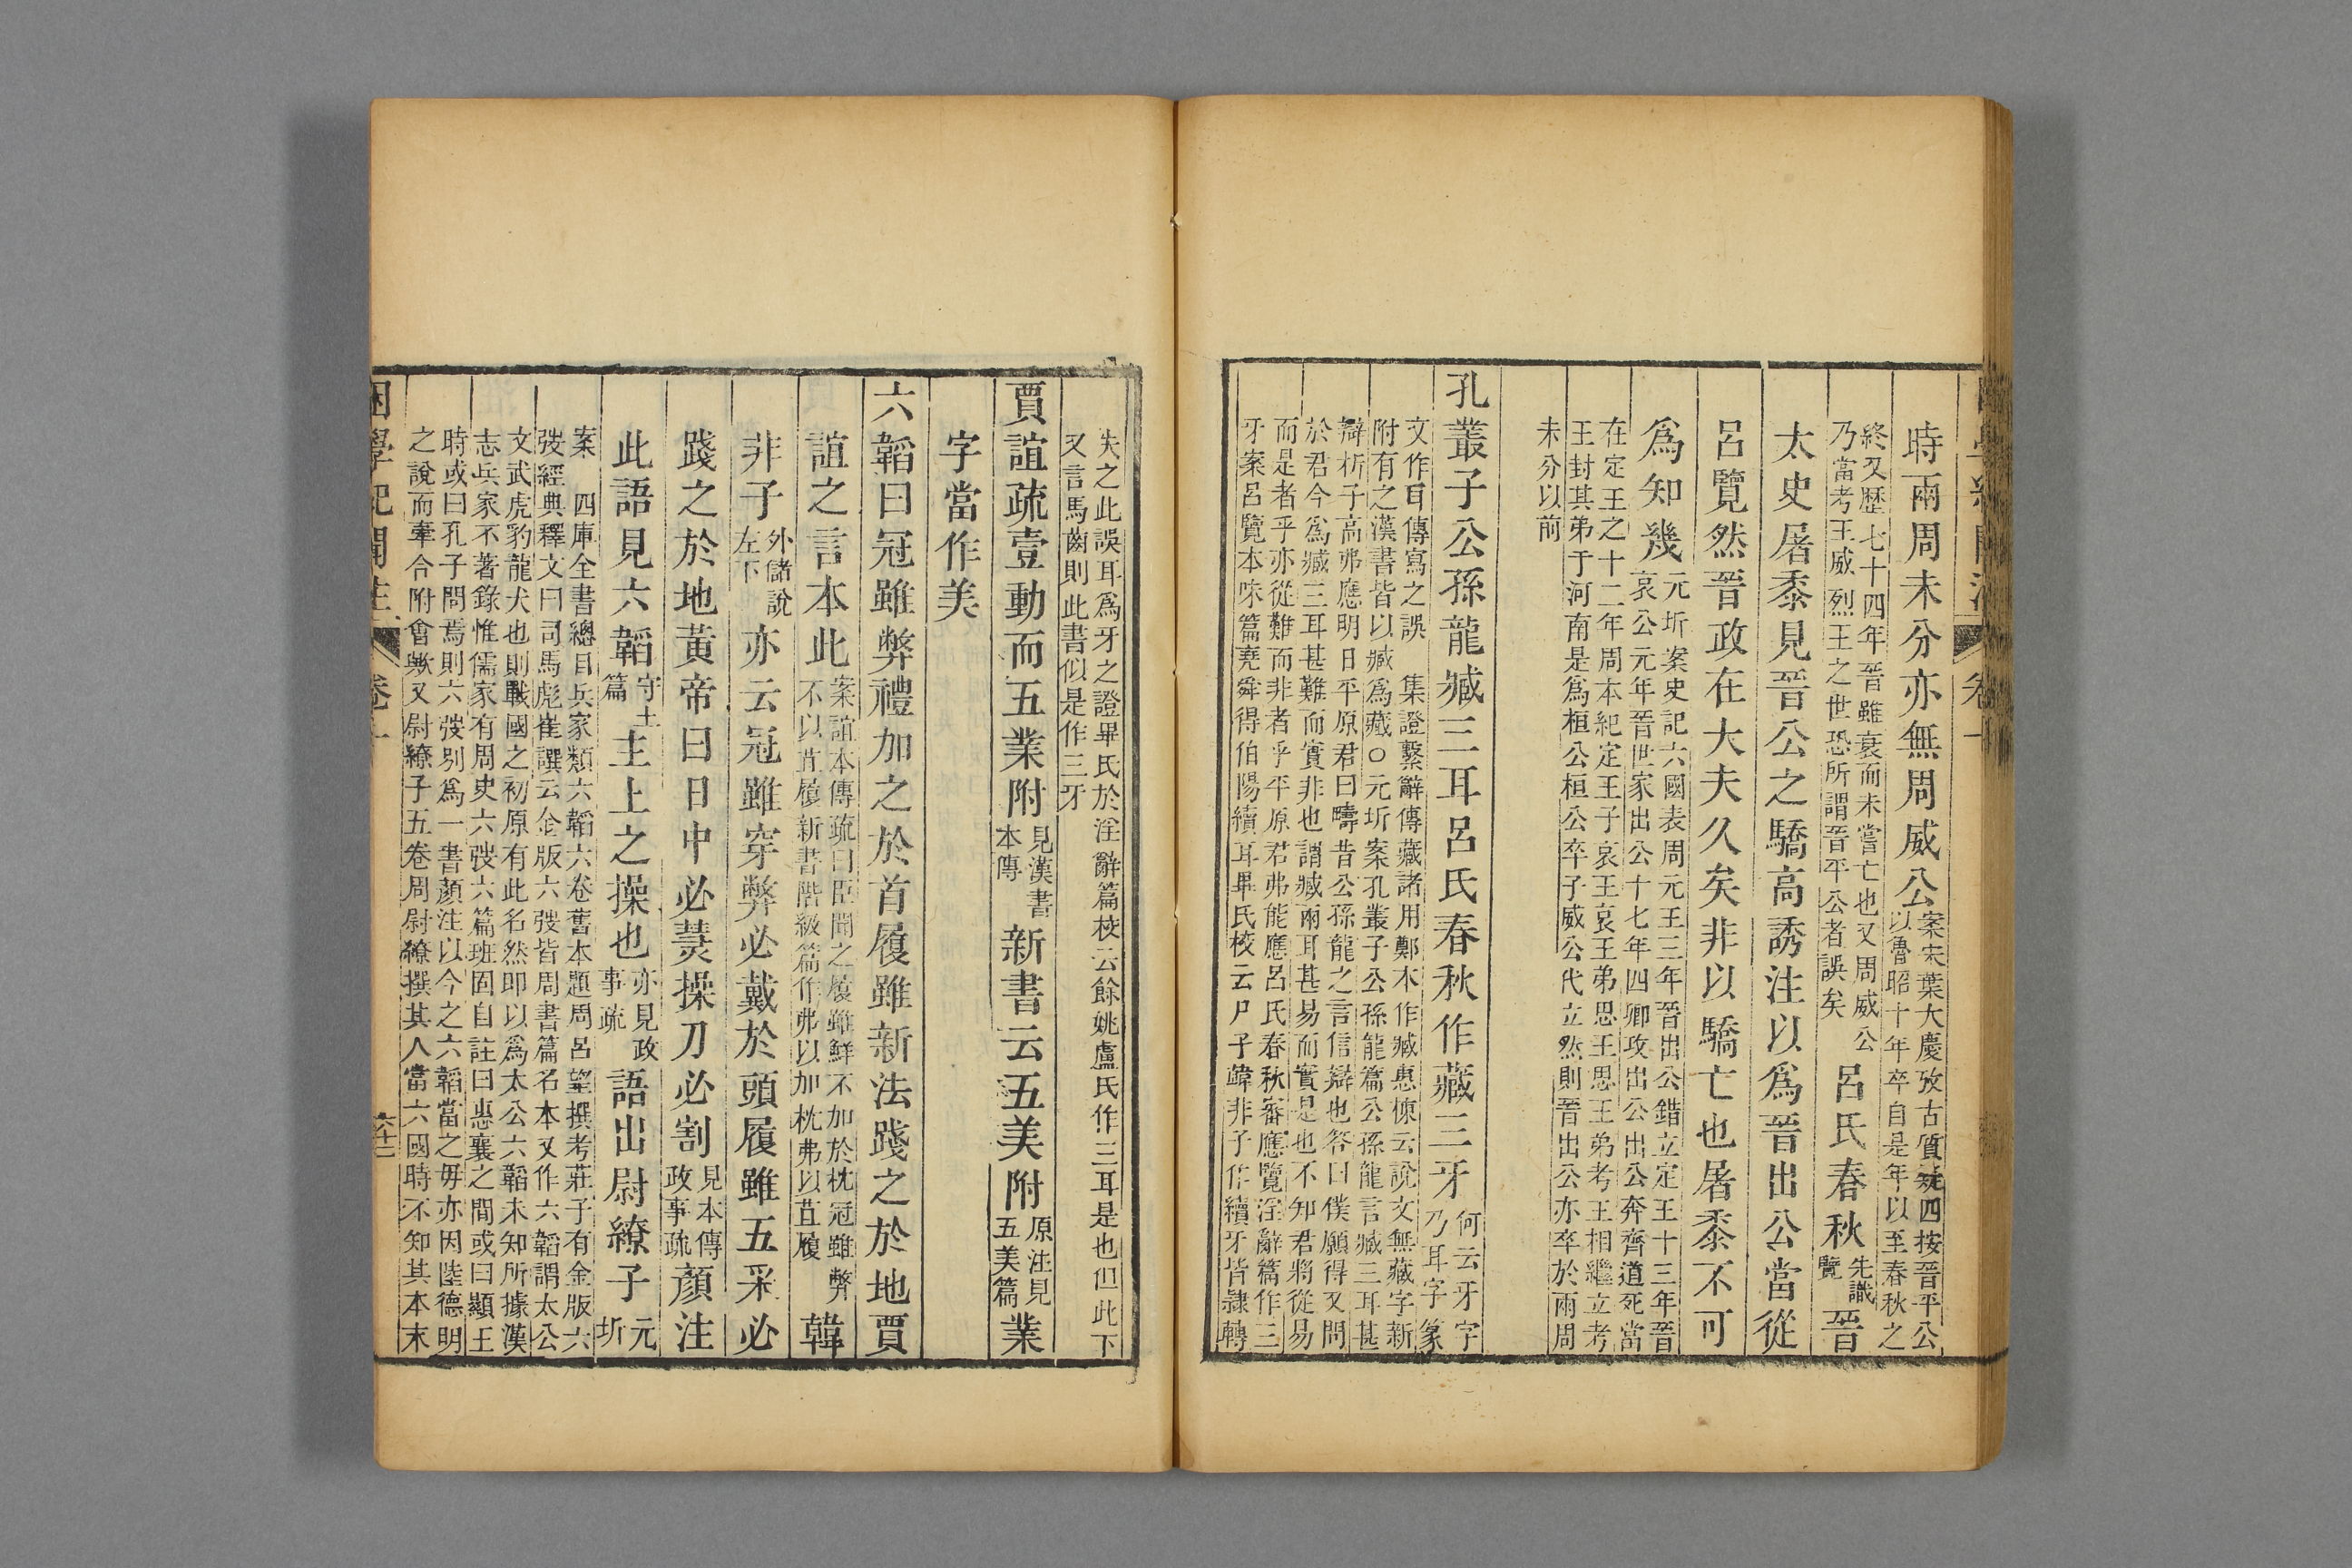 時雨周未分亦無周威公案宋葉大慶攷古質疑四按晉平公
以魯昭十年卒自是年以至春秋之
終又歷七十四年晉雖衰而未嘗亡也又周威公
乃當考王威烈王之世恐所謂晉平公者誤矣
呂氏春秋先識
覽晉
太史屠黍見晉公之驕高誘注以爲晉出公當從
呂覽然晉政在大夫久矣非以驕亡也屠黍不可
爲知幾元圻案史記六國表周元王三年晉出公錯立定王十三年晉
哀公元年晉世家出公十七年四卿攻出公出公奔齊道死當
在定王之十二年周本紀定王子哀王哀王弟思王思王弟考王相繼立考
王封其弟于河南是爲桓公桓公卒子威公代立然則晉出公亦卒於兩周
未分以前
孔叢子公孫龍臧三耳呂氏春秋作藏三牙何云牙字
乃耳字篆
文作𦣝傳寫之誤 集證繫辭傳藏諸用鄭本作臧惠㯥云說文無藏字新
附有之漢書皆以臧爲藏○元圻案孔叢子公孫龍篇公孫龍言臧三耳甚
辯析子高弗應明日平原君曰疇昔公孫龍之言信辯也答曰僕願得又問
於君今爲臧三耳甚難而實非也謂臧兩耳甚易而實是也不知君將從易
而是者乎亦從難而非者乎平原君弗能應呂氏春秋審應覽淫辭篇作三
牙案呂覽本味篇堯舜得伯陽續耳畢氏校云尸子韓非子作續牙皆隸轉
失之此誤耳爲牙之證畢氏於淫辭篇校云餘姚盧氏作三耳是也但此下
又言馬齒則此書似是作三牙
賈誼疏壹動而五業附見漢書
本傳新書云五美附原注見
五美篇業
字當作美
六韜曰冠雖弊禮加之於首履雖新法踐之於地賈
誼之言本此案誼本傳疏曰臣聞之履雖鮮不加於枕冠雖弊
不以苴履新書階級篇作弗以加枕弗以苴履韓
非子外儲說
左下亦云冠雖穿弊必戴於頭履雖五采必
踐之於地黃帝曰日中必䕒操刀必割見本傳
政事疏顏注
此語見六韜守土
篇主上之操也亦見政
事疏語出尉繚子元
圻
案 四庫全書總目兵家類六韜六卷舊本題周呂望撰考莊子有金版六
弢經典釋文曰司馬彪崔譔云金版六弢皆周書篇名本又作六韜謂太公
文武虎豹龍犬也則戰國之初原有此名然即以爲太公六韜未知所據漢
志兵家不著錄惟儒家有周史六弢六篇班固自註曰惠襄之間或曰顯王
時或曰孔子問焉則六弢別爲一書顏注以今之六韜當之毋亦因陸德明
之說而牽合附會歟又尉繚子五卷周尉繚撰其人當六國時不知其本末
困學紀聞注 卷十